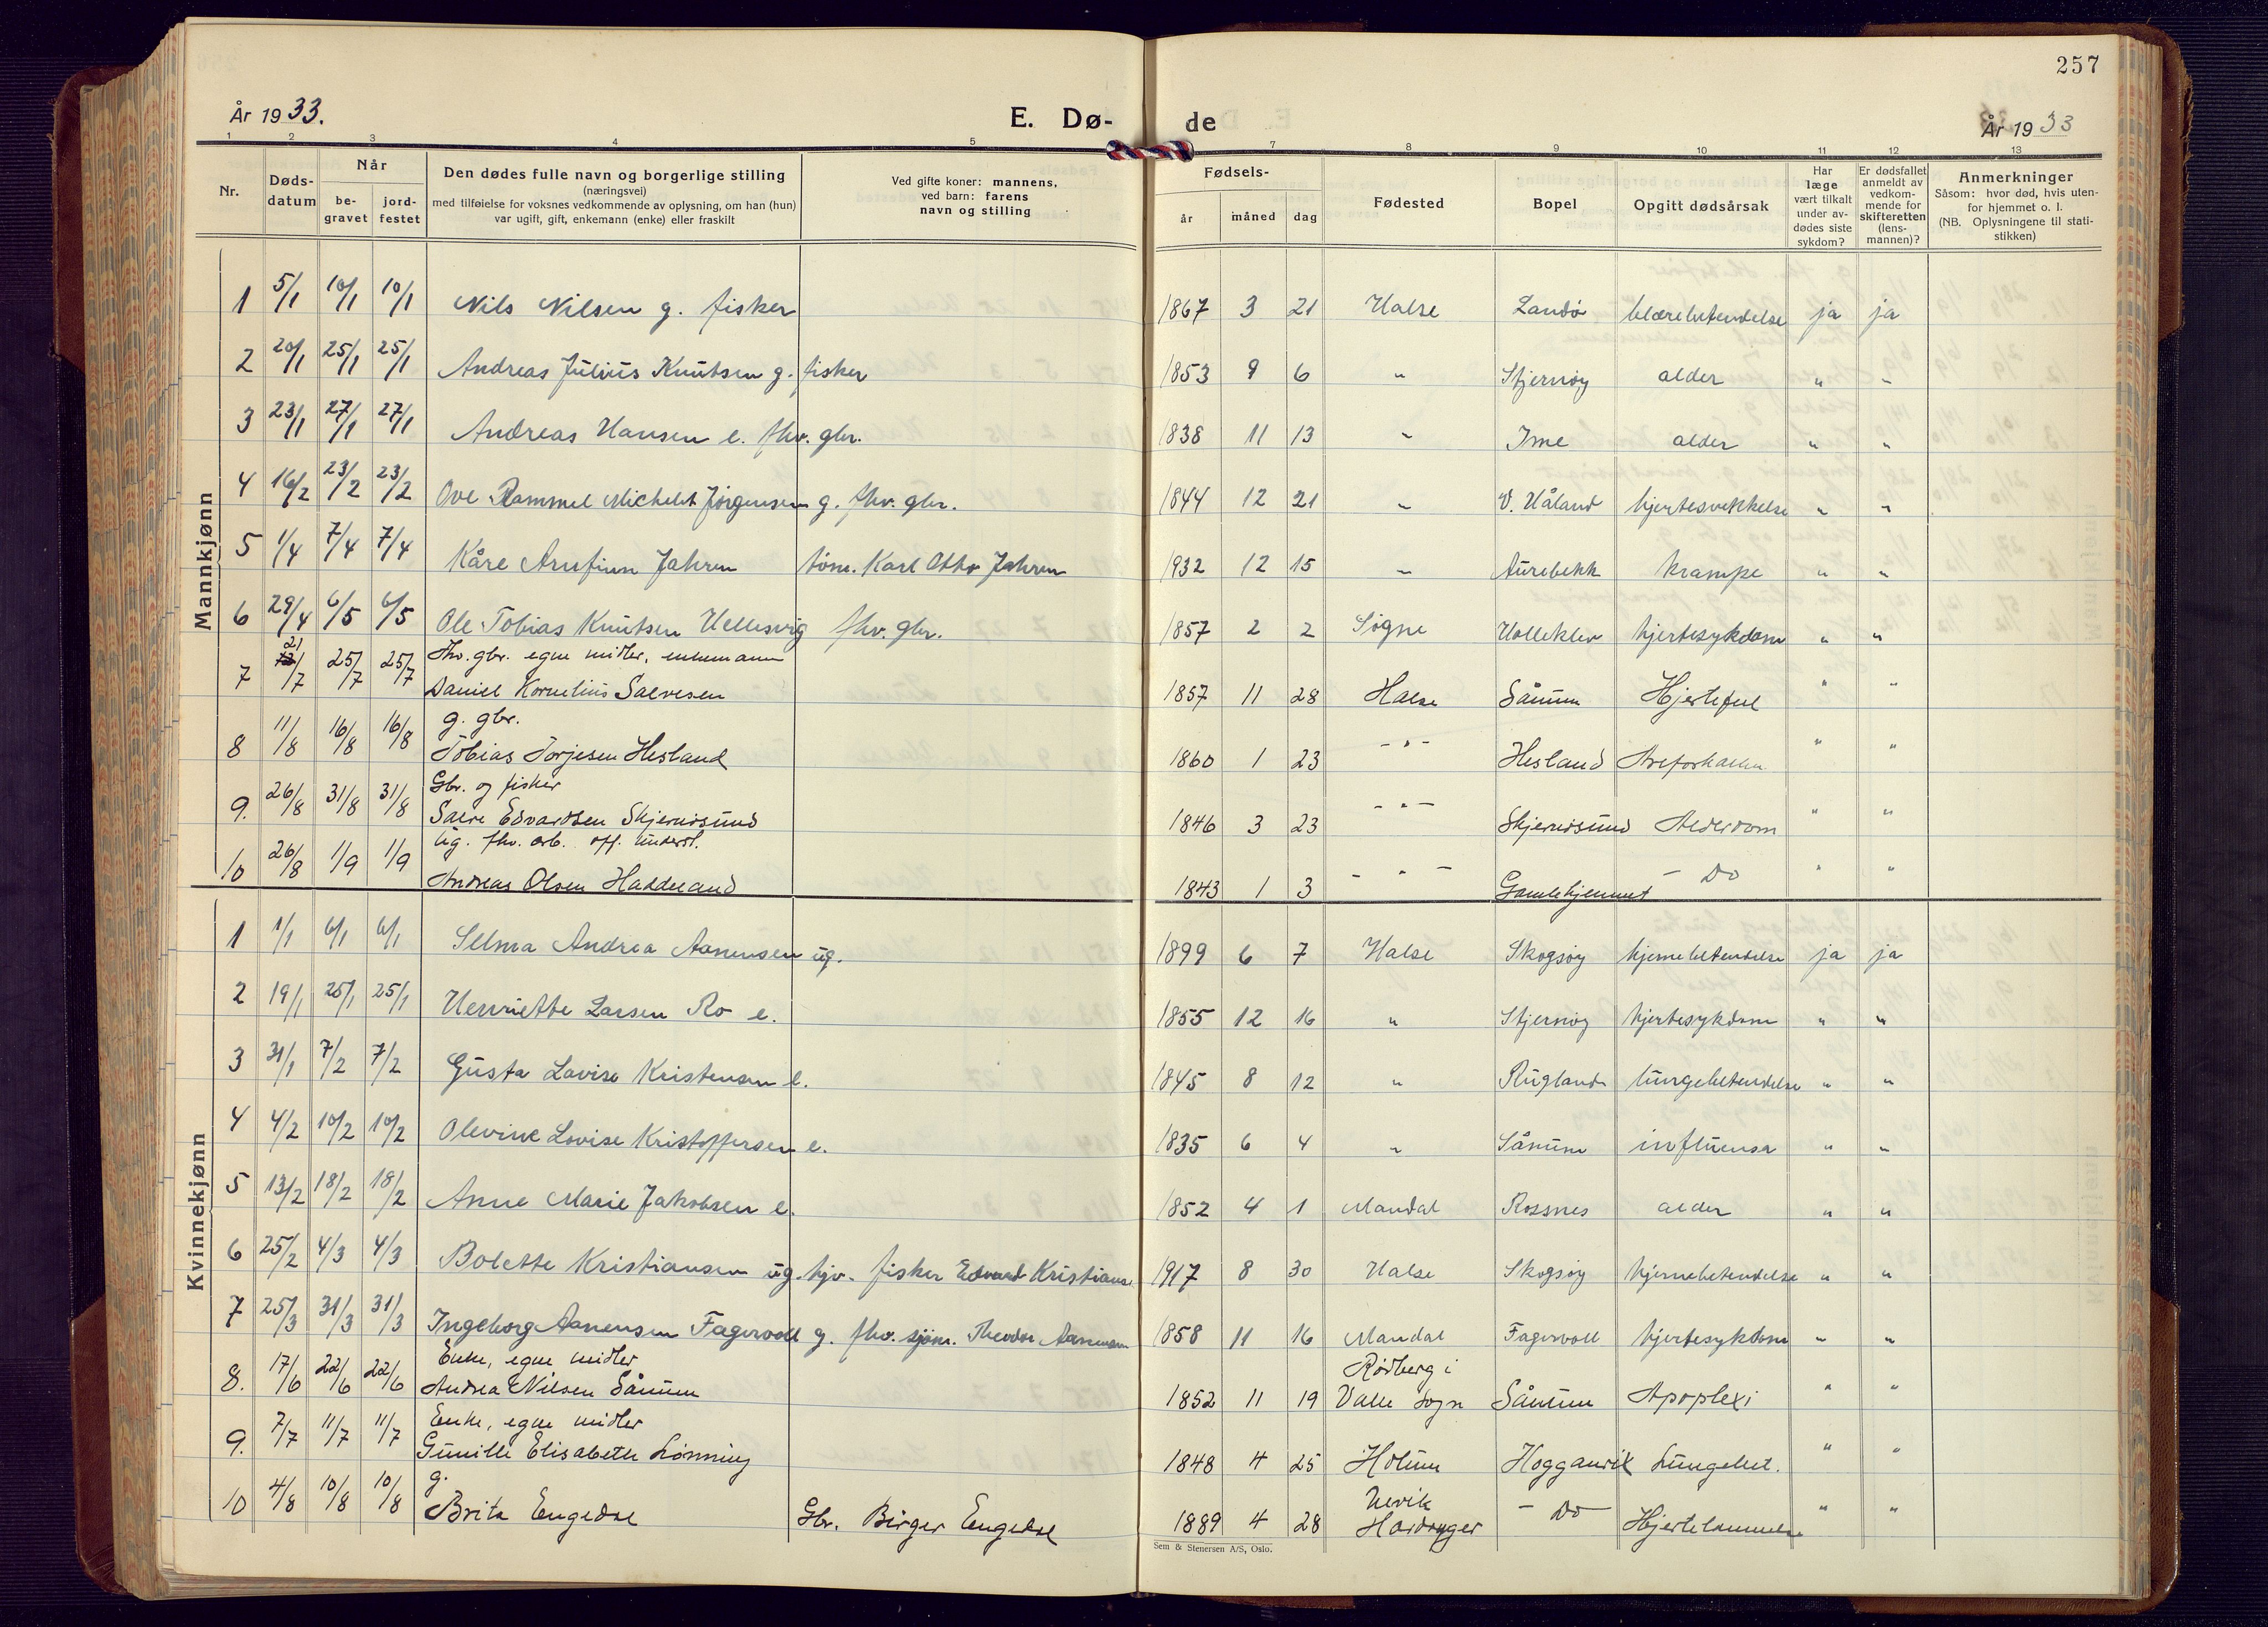 257
År 1933.
E. Dø-
de
År 1933
1 2 3 4 5
7 8 9 10 11 12 13
Nr.
Døds-
datum
Når
be-
gravet
jord-
festet
Den dødes fulle navn og borgerlige stilling
(næringsvei)
med tilføielse for voksnes vedkommende av oplysning, om han (hun)
var ugift, gift, enkemann (enke) eller fraskilt
Ved gifte koner: mannens,
ved barn: farens
navn og stilling
Fødsels-
år
måned
dag
Fødested
Bopel
Opgitt dødsårsak
Har
læge
vært tilkalt
under av-
dødes siste
sykdom?
Er dødsfallet
anmeldt av
vedkom-
mende for
skifteretten
(lens-
mannen)?
Anmerkninger
Såsom: hvor død, hvis uten-
for hjemmet o. l.
(NB. Oplysningene til stati-
stikken)
Mannkjønn
1 5/1 10/1 10/1 Nils Nilsen g. fisker 1867 3 21 Halse Landø blærebetendelse ja ja
2 20/1 25/1 25/1 Andreas Julius Knutsen g. fisker 1853 9 6 " Stjernøy alder " "
3 23/1 27/1 27/1 Andreas Hansen e. fhv. gbr. 1838 11 13 " Ime alder " "
4 16/2 23/2 23/2 Ove Rammel Michelet Jørgensen g. fhv. gbr. 1844 12 21 " V. Håland hjertesvekkelse " "
5 1/4 7/4 7/4 Kåre Arnfinn Jahren tøm. Karl Otto Jahren 1932 12 15 " Aurebekk krampe " "
6 29/4 6/5 6/5 Ole Tobias Knutsen Hellesvig fhv. gbr. 1857 2 2 Søgne Holleklev hjertesykdom " "
Fhv. gbr. egne midler, enkemann
7 21/7 25/7 25/7 Daniel Kornelius Salvesen 1857 11 28 Halse Sånum Hjertefeil " "
g. gbr.
8 11/8 16/8 16/8 Tobias Torjesen Hesland 1860 1 23 - " - Hesland Areforkalkn " "
Gbr. og fisker
9. 26/8 31/8 31/8 Salve Edvardsen Skjernøsund 1846 3 23 - " - Skjernøsund Alderdom " "
Ug. fhv. arb. off. underst.
10 26/8 1/9 1/9 Andreas Olsen Haddeland 1843 1 3 - " - Gamlehjemmet - Do " "
Kvinnekjønn
1 1/1 6/1 6/1 Selma Andrea Aanensen ug. 1899 6 7 Halse Skogsøy hjernebetendelse ja ja
2 19/1 25/1 25/1 Henriette Larsen Ro e. 1855 12 16 " Stjernøy hjertesykdom " "
3 31/1 7/2 7/2 Gusta Lovise Kristensen e. 1845 8 12 " Rugland lungebetendelse " "
4 4/2 10/2 10/2 Olevine Lovise Kristoffersen e. 1835 6 4 " Sånum influensa " "
5 13/2 18/2 18/2 Anne Marie Jakobsen e. 1852 4 1 Mandal Rossnes alder " "
6 25/2 4/3 4/3 Bolette Kristiansen ug. hjv. fisker Edvard Kristians. 1917 8 30 Halse Skogsøy hjernebetendelse " "
7 25/3 31/3 31/3 Ingeborg Aanensen Fagervoll g. fhv. sjøm. Theodor Aanensen 1858 11 16 Mandal Fagervoll hjertesykdom " "
Enke, egne midler Rødberg i
8. 17/6 22/6 22/6 Andrea Nilsen Sånum 1852 11 19 Valle Sogn Sånum Apoplexi " "
Enke, egne midler
9. 7/7 11/7 11/7 Gunille Elisabeth Lønning 1848 4 25 Holum Hogganvik Lungebet. " "
g. Ulvik
10 4/8 10/8 10/8 Brita Engedal Gbr. Birger Engedal 1889 4 28 Hardanger - Do Hjertelammelse " "
Sem & Stenersen A/S, Oslo.